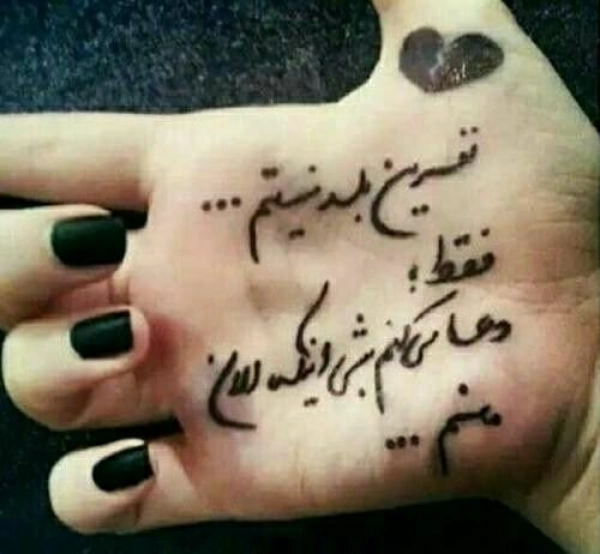 نفرین بلد نیستم ...
فقط ؛
دعا می کنم بشی اینکه الان
منم ...